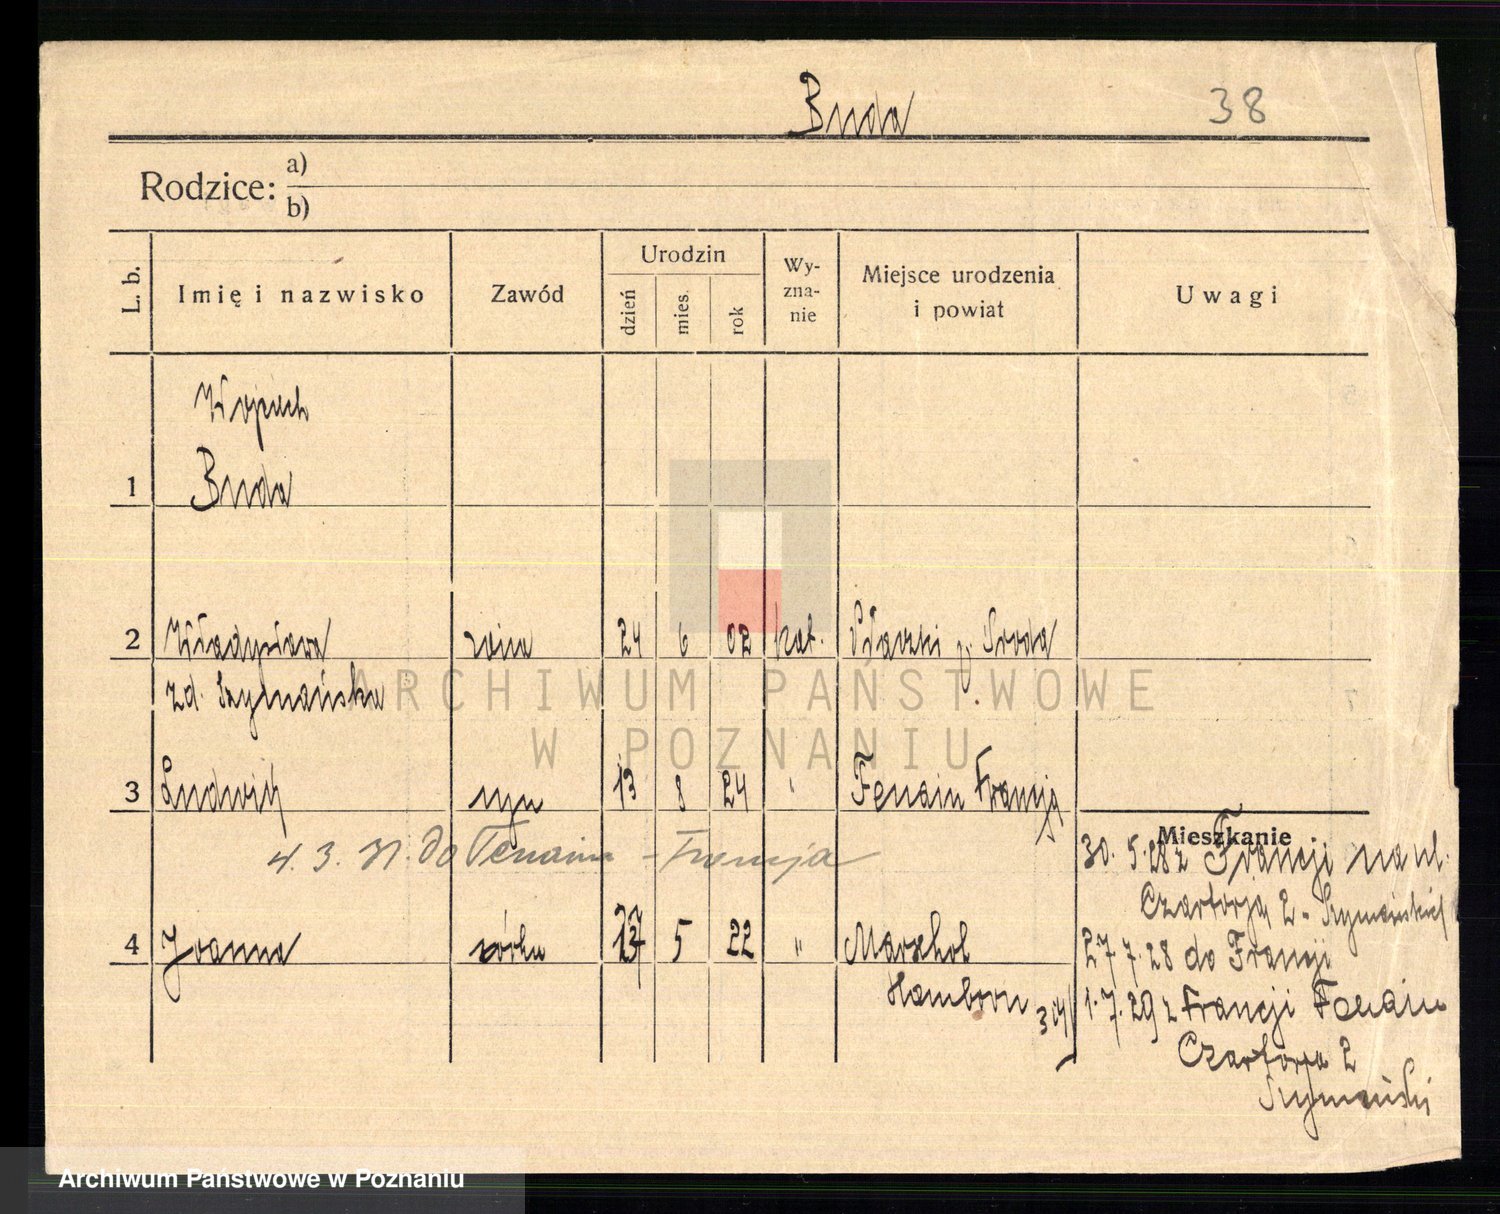 Buda
38
Rodzice: a)
b)
L. b.
Imię i nazwisko
Zawód
Urodzin
dzień
mies.
rok
Wy-
zna-
nie
Miejsce urodzenia
i powiat
Uwagi
Wojciech
1 Buda
2 Władysława żona 24 6 02 kat. Płaczki p. Środa
zd. Szymańska
ARCHIWUM PAŃSTWOWE
W POZNANIU
3 Ludwik syn 13 8 24 " Fenain Francja
4. 3. 31. do Fenain - Francja
Mieszkanie
30. 5. 28 z Francji na ul.
Czartorja 2 - Szymańskich
4 Joanna córka 5 22 " Marxhol
Hamborn
27 7. 28 do Francji
1. 7. 29 z Francji Fenain
Czartorja 2
Szymański
Archiwum Państwowe w Poznaniu